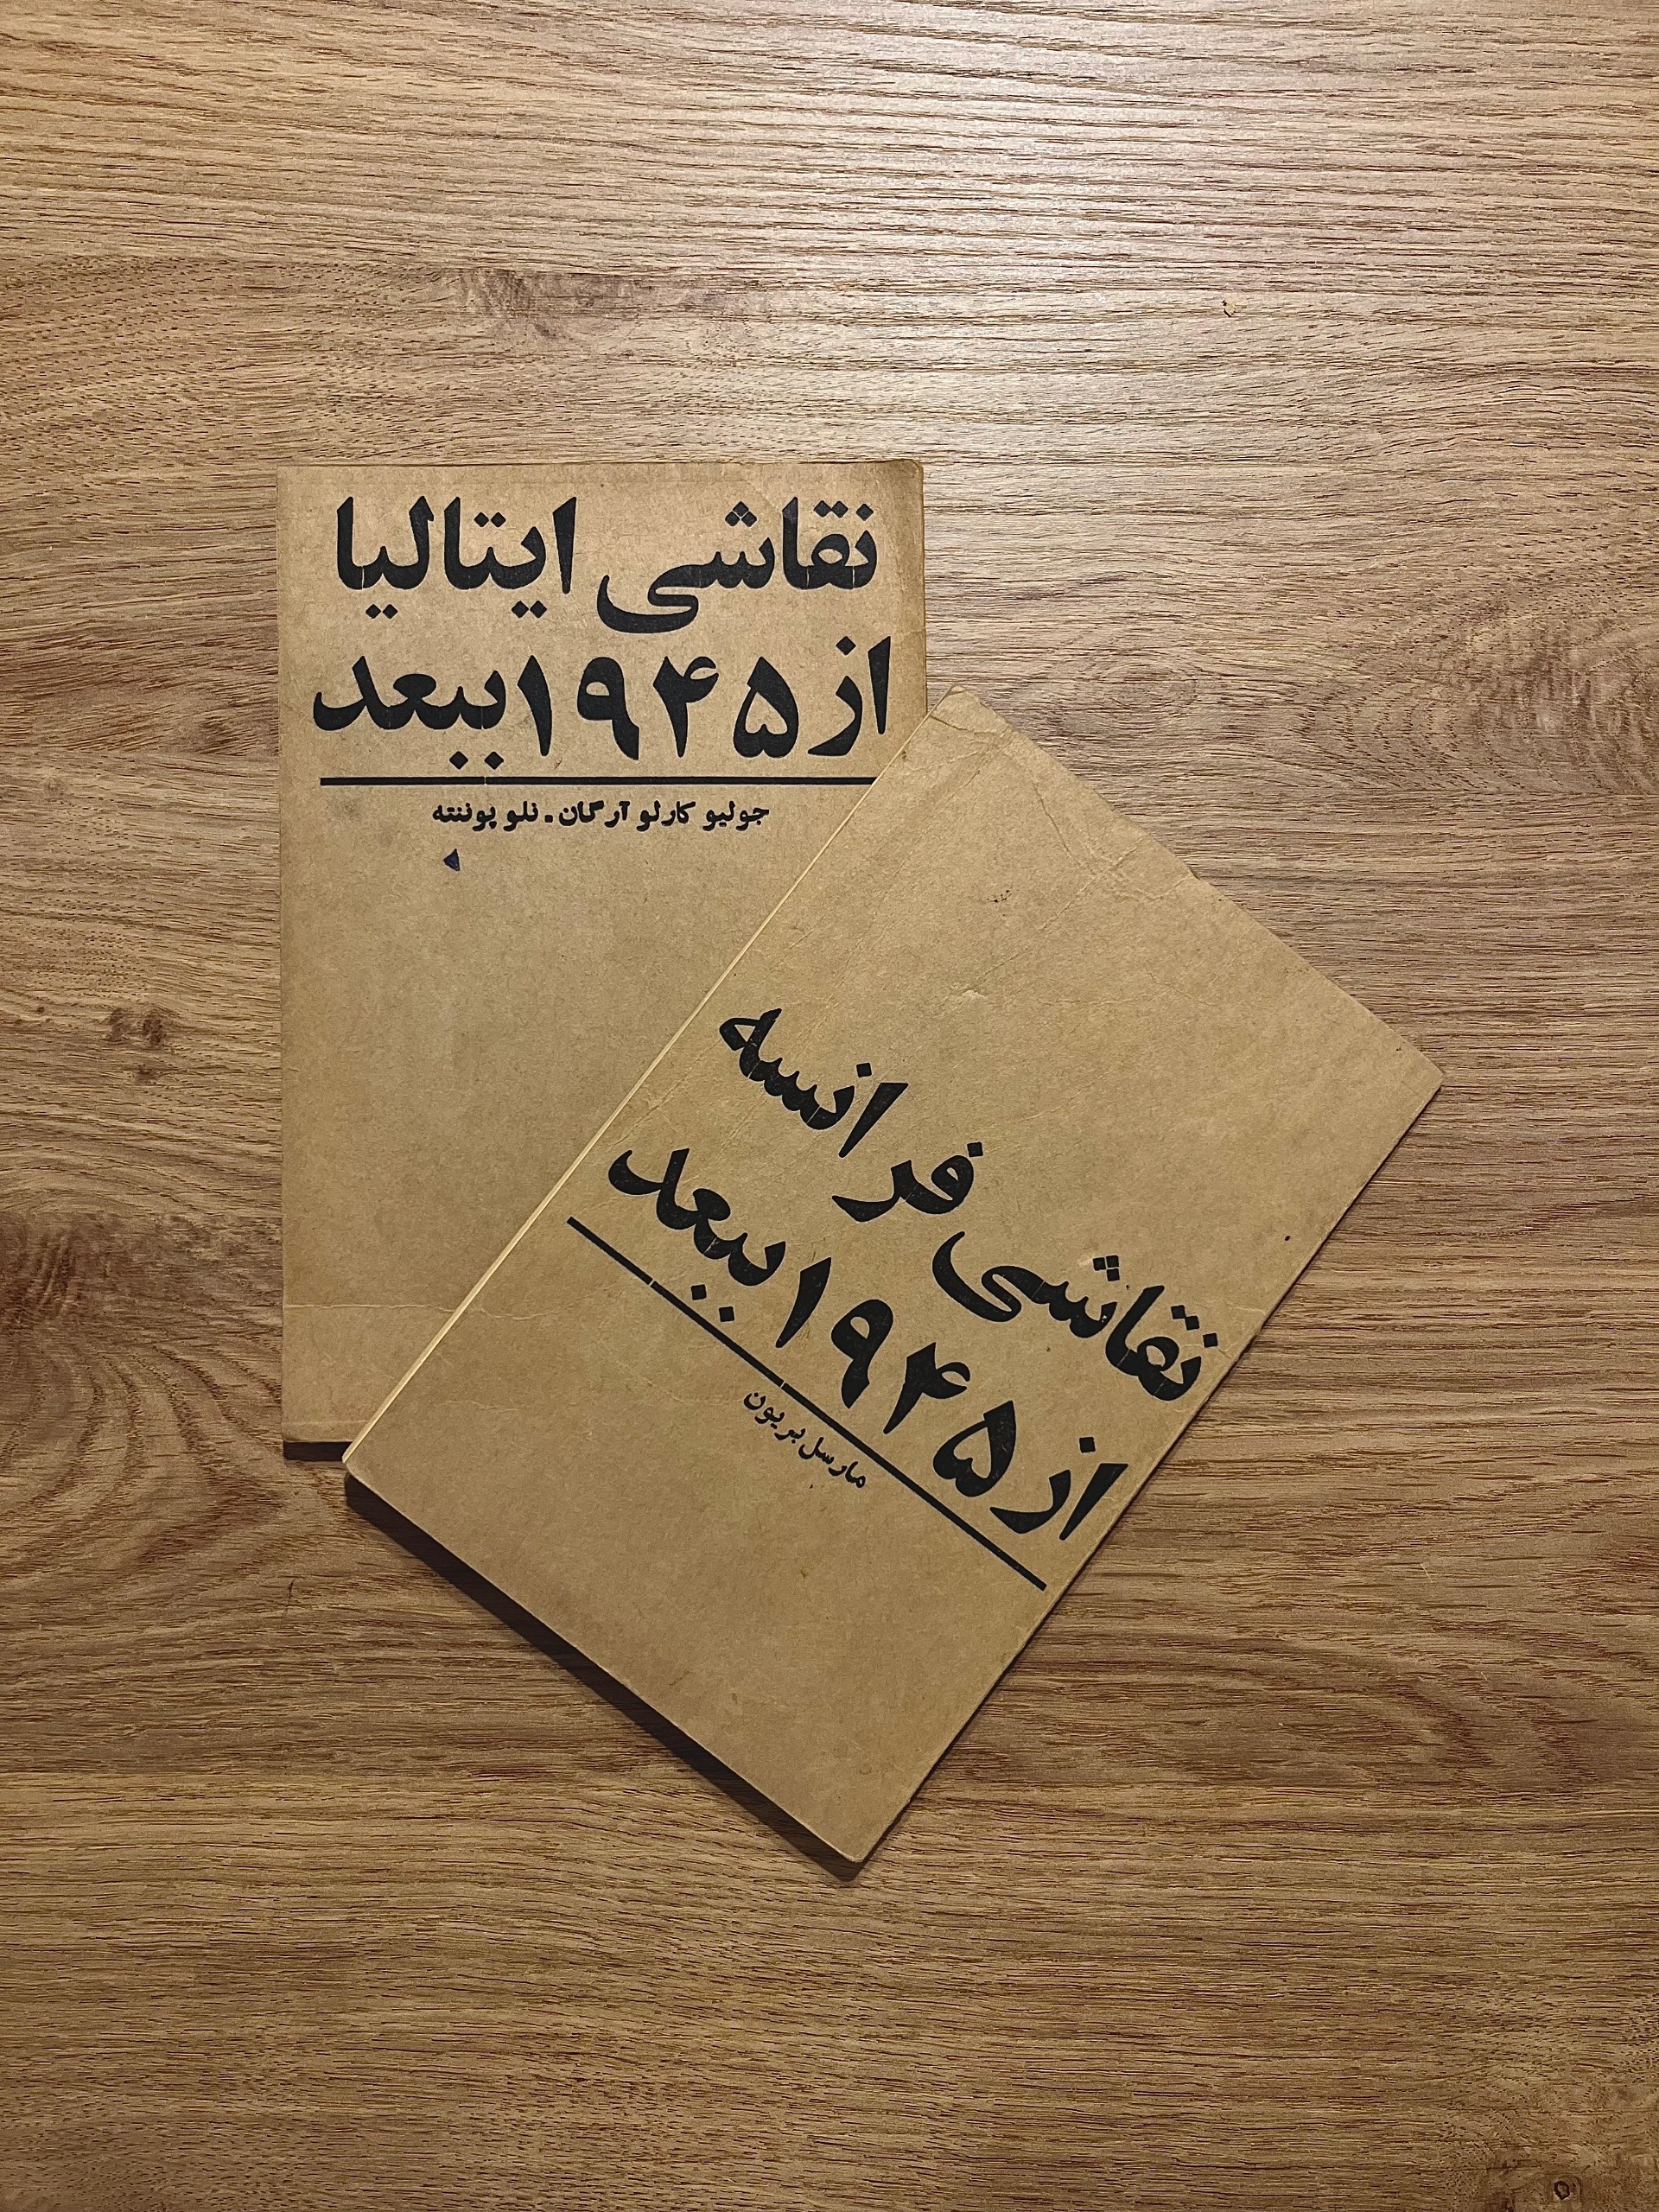 نقاشی ایتالیا
از ۱۹۴۵ ببعد
جولیو کارلو آرگان - نلو پوننته
نقاشی فرانسه
از ۱۹۴۵ ببعد
مارسل بریون